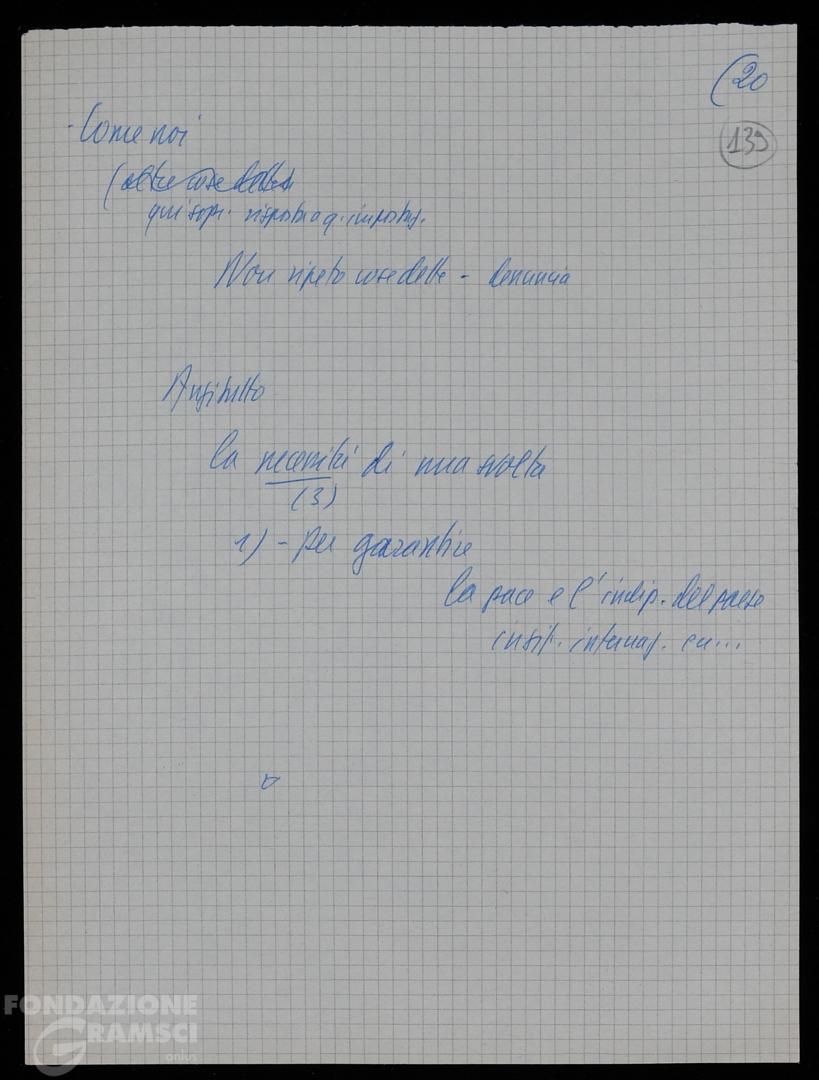 (20
139
- Come noi
(altre cose dette
qui sopr. risposta a q. impostaz.
Non ripeto cose dette - denuncia
Anzitutto
la necessità di una svolta
(3)
1) - per garantire
la pace e l'indip. del paese
in sit. internaz. cu...
FONDAZIONE
GRAMSCI
onlus